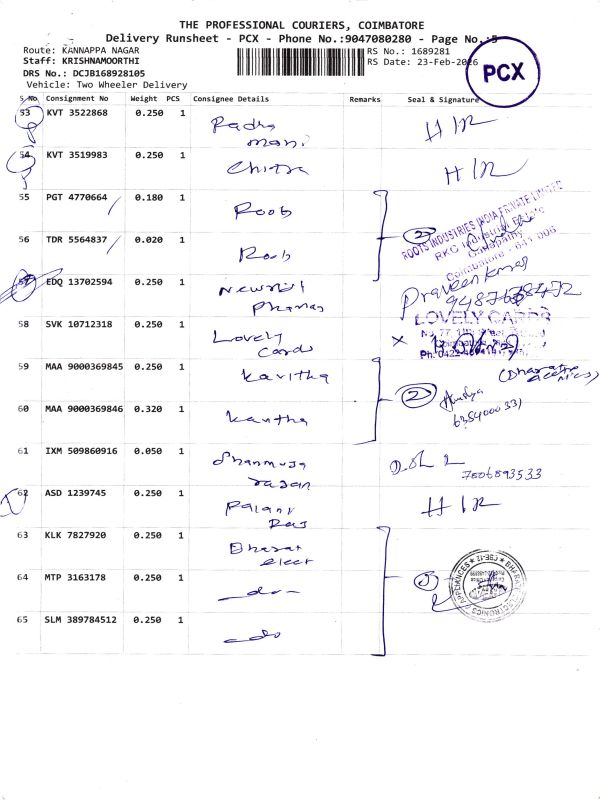 THE PROFESSIONAL COURIERS, COIMBATORE
Delivery Runsheet - PCX - Phone No.:9047080280 - Page No.:5
Route: KANNAPPA NAGAR
RS No.: 1689281
Staff: KRISHNAMOORTHI
RS Date: 23-Feb-2026
DRS No.: DCJB168928105
Vehicle: Two Wheeler Delivery
PCX
S.No Consignment No Weight PCS Consignee Details Remarks Seal & Signature
53 KVT 3522868 0.250 1 Padma mani HIR
54 KVT 3519983 0.250 1 Chitra HIR
55 PGT 4770664 0.180 1 Roob
56 TDR 5564837 0.020 1 Roob
2
ROOTS INDUSTRIES INDIA PRIVATE LIMITED
RKC Industrial Estate
Ganapathy
Coimbatore - 641 006
57 EDQ 13702594 0.250 1 Newmist Pharmas Praveen Kumar
58 SVK 10712318 0.250 1 Lovely Cards
LOVELY CARDS
59 MAA 9000369845 0.250 1 Kavitha
60 MAA 9000369846 0.320 1 Kavitha
2
6354000331
61 IXM 509860916 0.050 1 Shanmuga rajan
7806893533
62 ASD 1239745 0.250 1 Palani Raj HIR
63 KLK 7827920 0.250 1 Bharat elect
64 MTP 3163178 0.250 1 -do-
65 SLM 389784512 0.250 1 -do
3